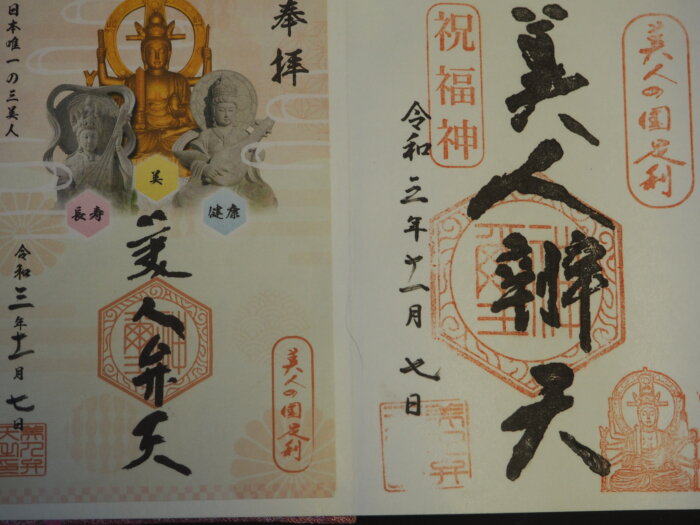 奉拝
日本唯一の三美人
美
長寿
健康
美人弁天
令和三年十一月七日
美人の国足利
美人の国足利
美人辨天
祝福神
令和三年十一月七日